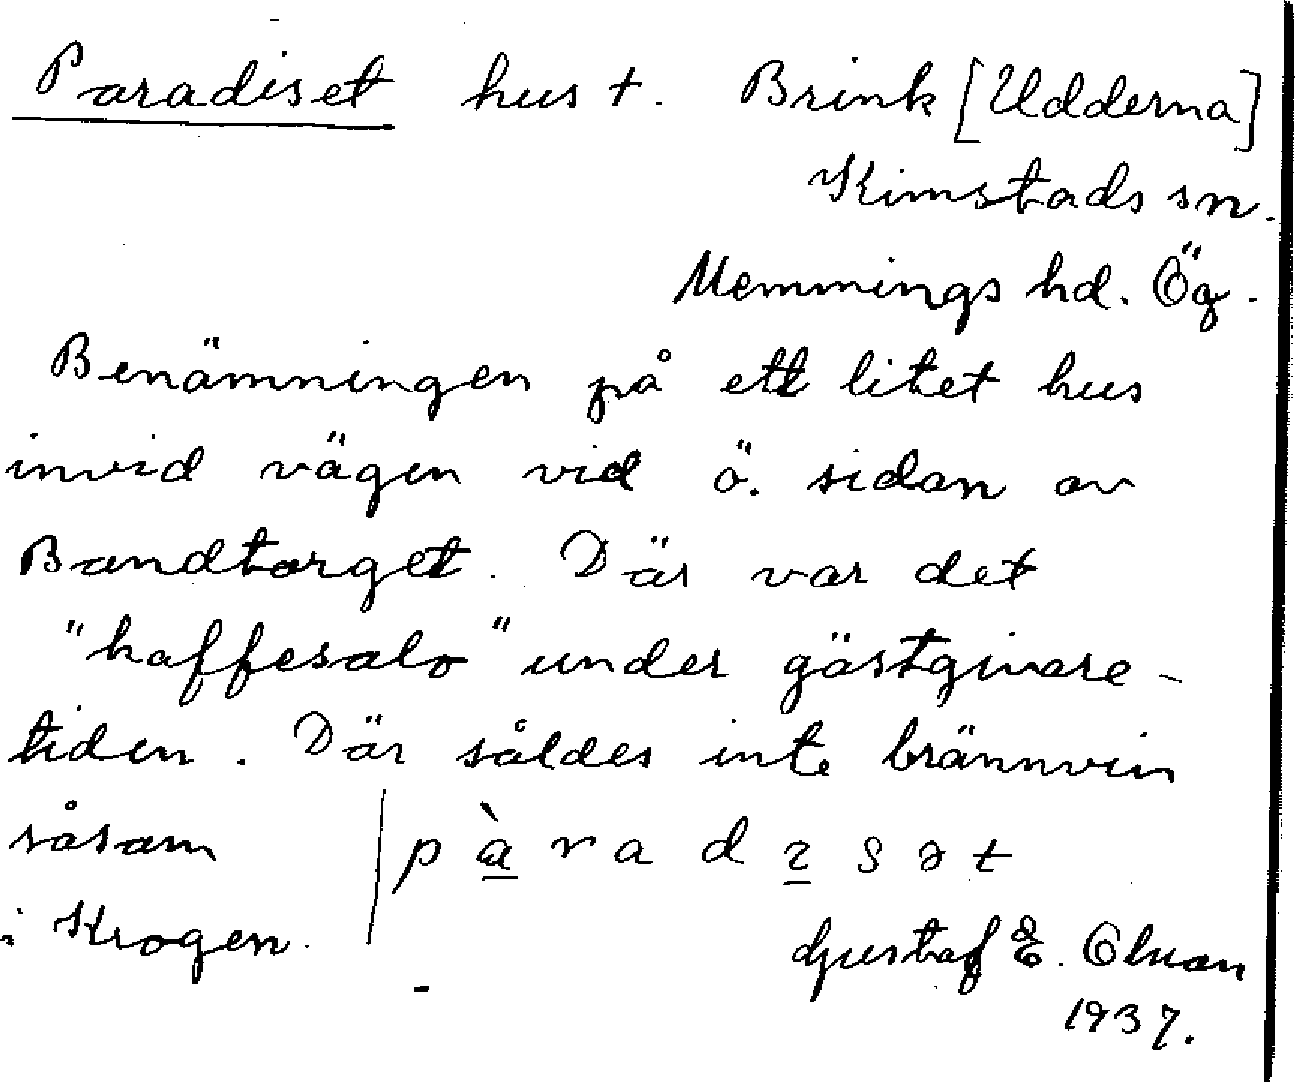 Paradiset hus †. Brink [Udderna]
Kimstads sn.
Memmings hd. Ög.
Benämningen på ett litet hus
invid vägen vid ö. sidan av
Bandtorget. Där var det
"kaffesalo" under gästgivare-
tiden. Där såldes inte brännvin
såsom | pàradısət
i Krogen.
Gustaf E.
1937.